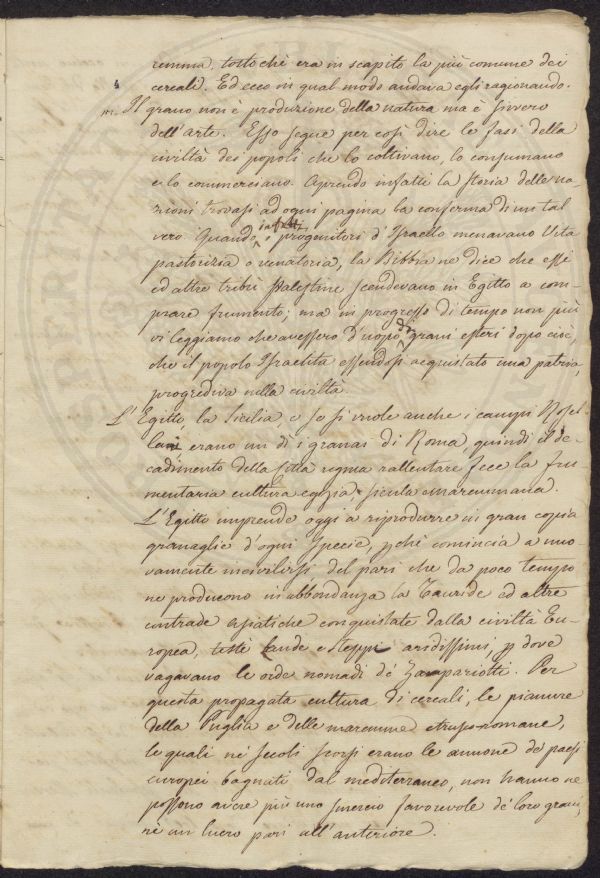 remma, tosto chè era in scapito la più comune dei
cereali. Ed ecco in qual modo andava egli ragionando.
Il grano non è produzione della natura ma è sivvero
dell'arte. Esso segue per così dire le fasi della
civiltà dei popoli che lo coltivano, lo consumano
e lo commerciano. Aprendo infatti la storia delle na-
zioni trovasi ad ogni pagina la conferma di un tal
vero. Quando i progenitori d'Isræello menavano vita
pastorizia o venatoria, la Bibbia ne dice che essi
ed altre tribù Palestine scendevano in Egitto a com-
prare frumento; ma in progresso di tempo non più
vi leggiamo che avessero d'uopo di grani esteri dopo cioè,
che il popolo Israelita essendosi acquistato una patria,
progrediva nella civiltà.
L'Egitto, la Sicilia, e se si vuole anche i campi Rosel-
lani erano un dì i granai di Roma quindi il de-
cadimento della città regina rallentare fece la fru-
mentaria cultura egizia, sicula e maremmana.
L'Egitto imprende oggi a riprodurre in gran copia
granaglie d'ogni specie, pchè comincia a nuo-
vamente incivilirsi del pari che da poco tempo
ne producono in abbondanza la Tauride ed altre
contrade asiatiche conquistate dalla civiltà Eu-
ropea, testè lande e steppe aridissimi, p dove
vagavano le orde nomadi de' Zampariotti. Per
questa propagata cultura di cereali, le pianure
della Puglia e delle maremme etrusco-romane,
le quali nei secoli scorsi erano le annone de' paesi
europei bagnati dal mediterraneo, non hanno ne
possono avere più uno smercio favorevole de' loro grani,
nè un lucro pari all'anteriore.